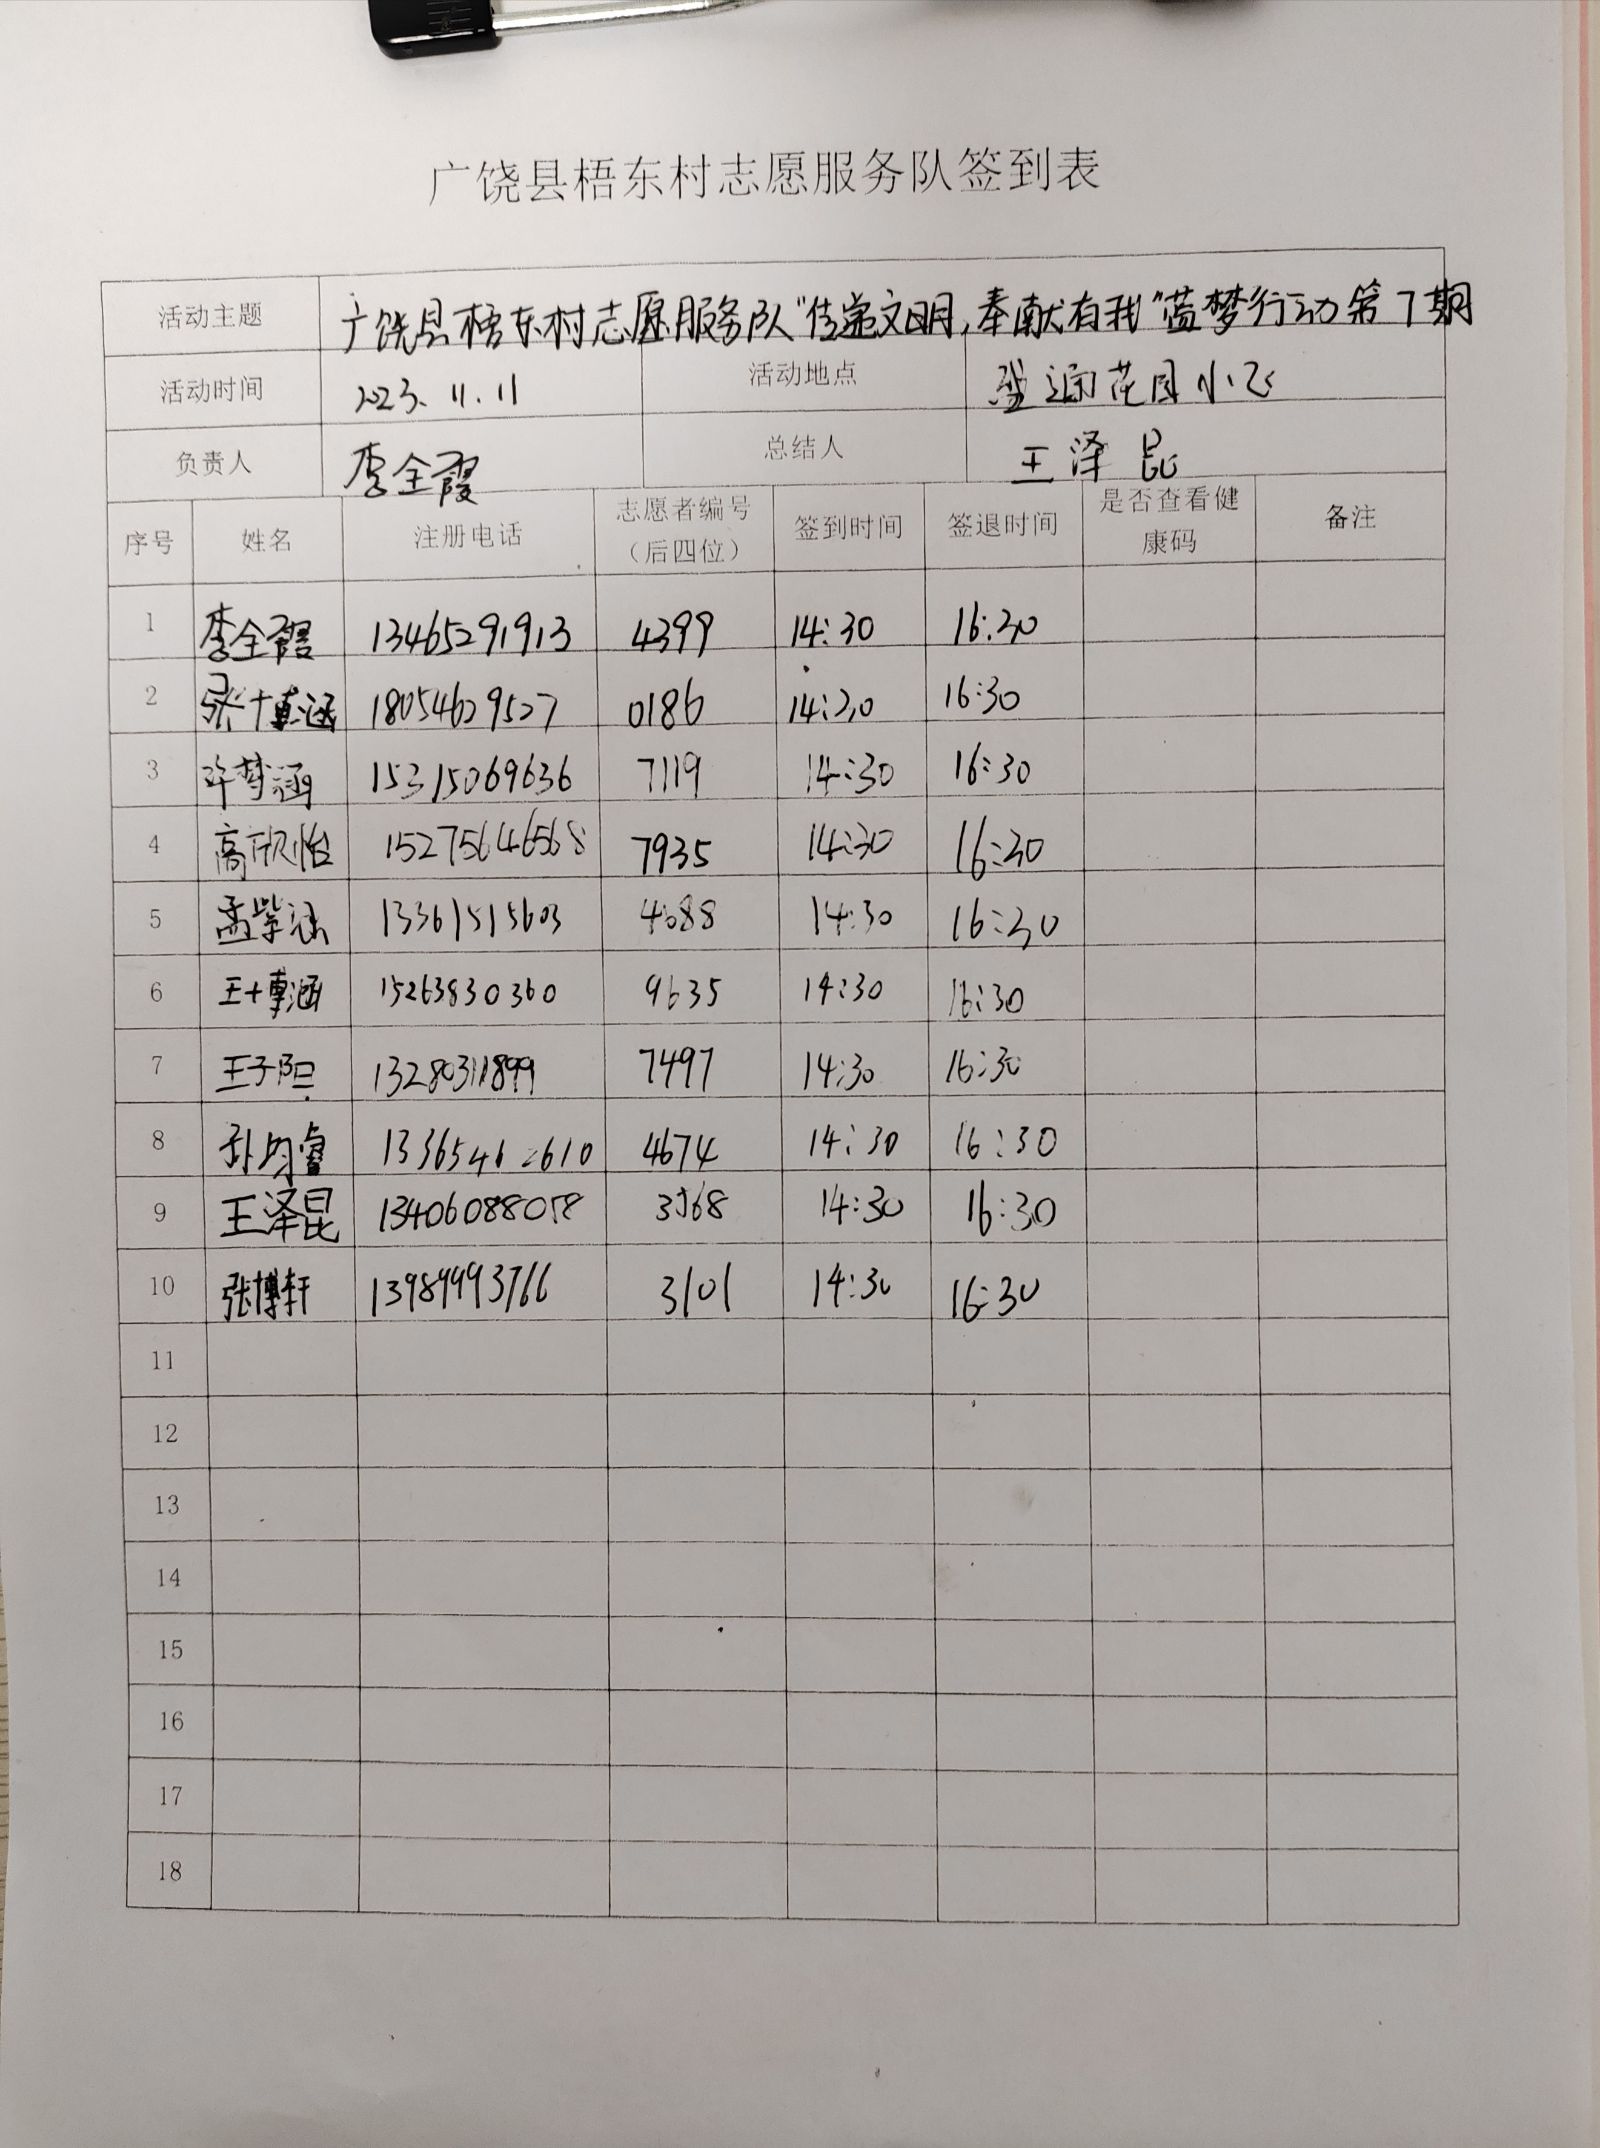 广饶县梧东村志愿服务队签到表
活动主题 广饶县梧东村志愿服务队"传递文明,奉献有我"蓝梦行动第7期
活动时间 2023.11.11 活动地点 花园小区
负责人 李全霞 总结人 王泽昆
序号 姓名 注册电话 志愿者编号（后四位） 签到时间 签退时间 是否查看健康码 备注
1 李全霞 13465291913 4399 14:30 16:30
2 张博涵 18054629527 0186 14:30 16:30
3 许梦涵 15315069636 7119 14:30 16:30
4 高欣怡 15275646568 7935 14:30 16:30
5 孟紫涵 13361515603 4088 14:30 16:30
6 王博涵 15263830360 9635 14:30 16:30
7 王子阳 13280311899 7497 14:30 16:30
8 孙均睿 13365462610 4674 14:30 16:30
9 王泽昆 13406088058 3568 14:30 16:30
10 张博轩 13989993766 3101 14:30 16:30
11
12
13
14
15
16
17
18